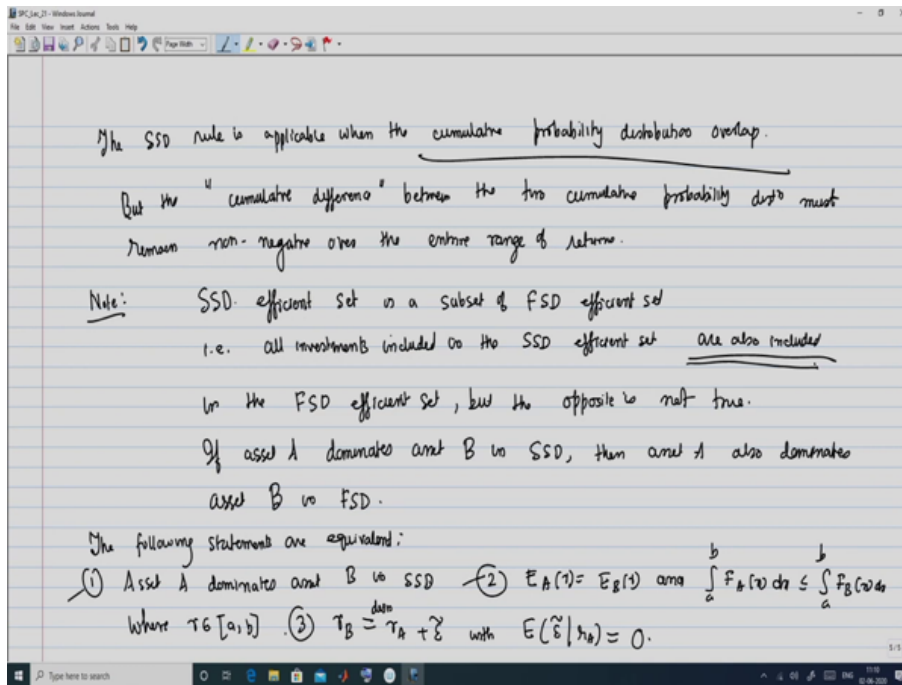 SPC_Lec_21 - Windows Journal
File Edit View Insert Actions Tools Help
Page Width
The SSD rule is applicable when the cumulative probability distribution overlap.
But the "cumulative difference" between the two cumulative probability distⁿ must
remain non-negative over the entire range of returns.
Note: SSD efficient set is a subset of FSD efficient set
i.e. all investments included in the SSD efficient set are also included
in the FSD efficient set, but the opposite is not true.
If asset A dominates asset B in SSD, then asset A also dominates
asset B in FSD.
The following statements are equivalent:
① Asset A dominates asset B in SSD ② E_A(r) = E_B(r) and ∫_a^b F_A(r) dr ≤ ∫_a^b F_B(r) dr
where r ∈ [a,b]. ③ r_B =^{distⁿ} r_A + ε̃ with E(ε̃ | r_A) = 0.
5/5
Type here to search
ENG 11:10
02-06-2020